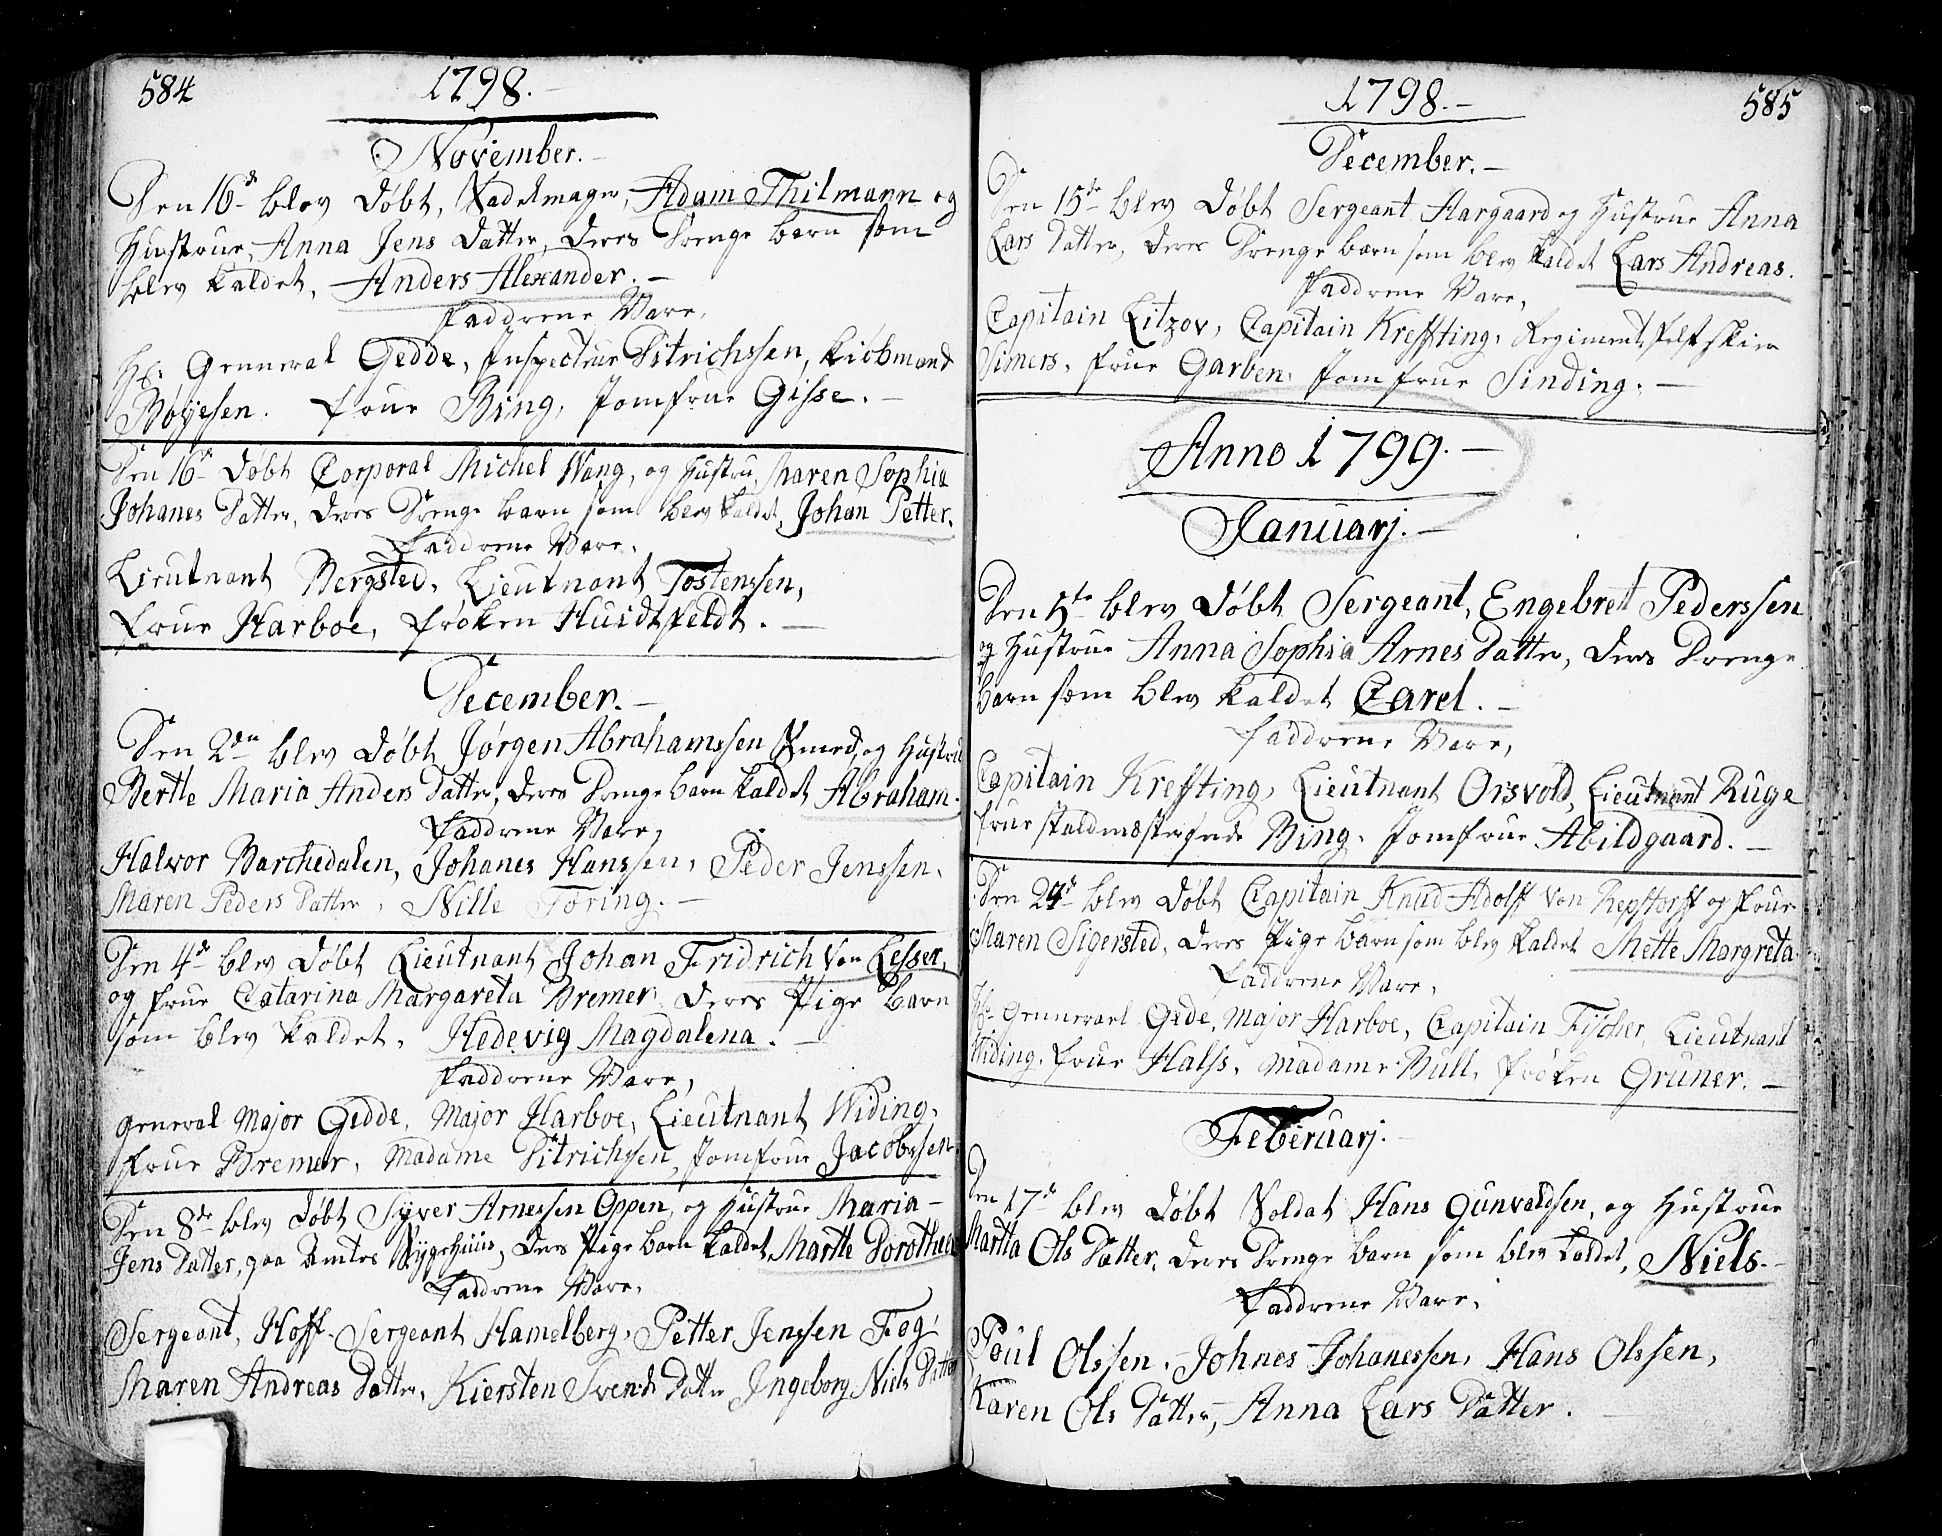 584
1798.
November.
Den 16de blev Døbt, Sadelmager, Adam Thilmann og
Hustrue, Anna Jens Datter, deres Drenge barn som
blev kaldet, Anders Alexander.
Faddrene Vare,
Hr: Genneral Gedde, Inspecteur Ditrichssen, Kiøbmand
Bøyesen. Frue Bing, Jomfrue Gisse.
Den 16de Døbt Corporal Michel Wang, og Hustru, Maren Sophia
Johanes Datter, deres Drenge barn som blev kaldet, Johan Petter.
Faddrene Vare,
Lieutnant Bergsted, Lieutnant Tostenssen,
Frue Harboe, Frøken Huidtfeldt.
December.
Den 2den blev Døbt Jørgen Abrahamssen Smed, og Hustrue
Berthe Maria Anders Datter, deres Drenge barn kaldet Abraham.
Faddrene Vare,
Halvor Barchedalen, Johanes Hanssen, Peder Jenssen,
Maren Peders Datter, Nille Toring.
Den 4de blev Døbt Lieutnant Johan Fridrich Von Lesser,
og Frue Catarina Margareta Bremer, deres Pige barn
som blev kaldet, Hedevig Magdalena.
Faddrene Vare,
General Major Gedde, Major Harboe, Lieutnant Widing,
Frue Bremer, Madame Ditrichssen, Jomfrue Jacobssen
Den 8de blev Døbt Syver Arnessen Oppen, og Hustrue Maria
Jens Datter, paa Amtes Sygehuus, deres Pige barn kaldet Marthe Dorothea
Faddrene Vare,
Sergeant, Hoff, Sergeant Hamelberg, Petter Jenssen Fog,
Maren Andreas Datter, Kiersten Svends Datter Ingeborg Niels Datter
1798.
585
December.
Den 15de blev Døbt Sergeant Aargaard og Hustrue Anna
Lars Datter, deres Drenge barn som blev kaldet Lars Andreas.
Faddrene Vare,
Capitain Litzov, Capitain Kreffting, Regiments Feltskier
Simers, Frue Garben, Jomfrue Sinding.
Anno 1799.
Januarj.
Den 5te blev Døbt Sergeant, Engebret Pederssen
og Hustrue Anna Sophia Arnes Datter, deres Drenge
barn som blev kaldet Carel.
Faddrene Vare,
Capitain Kreffting, Lieutnant Orsvold, Lieutnant Ruge
Frue Staldmæsterinde Bing, Jomfrue Abildgaard.
Den 24de blev Døbt Capitain Knud Adolff Von Repstorff og Frue
Maren Sigersted, deres Pige barn som blev kaldet Mette Margreta
Faddrene Vare,
Hr: Gennerael Gede, Major Harboe, Capitain Fischer, Lieutnant
Widing, Frue Halss, Madame Bull, Frøken Grüner.
Feberuarj.
Den 17de blev Døbt Soldat Hans Gunvaldsen, og Hustrue
Martta Ols Datter, deres Drenge barn som blev kaldet, Niels.
Faddrene Vare,
Poul Olssen, Johnes Johanessen, Hans Olssen,
Karen Ols Datter, Anna Lars Datter.